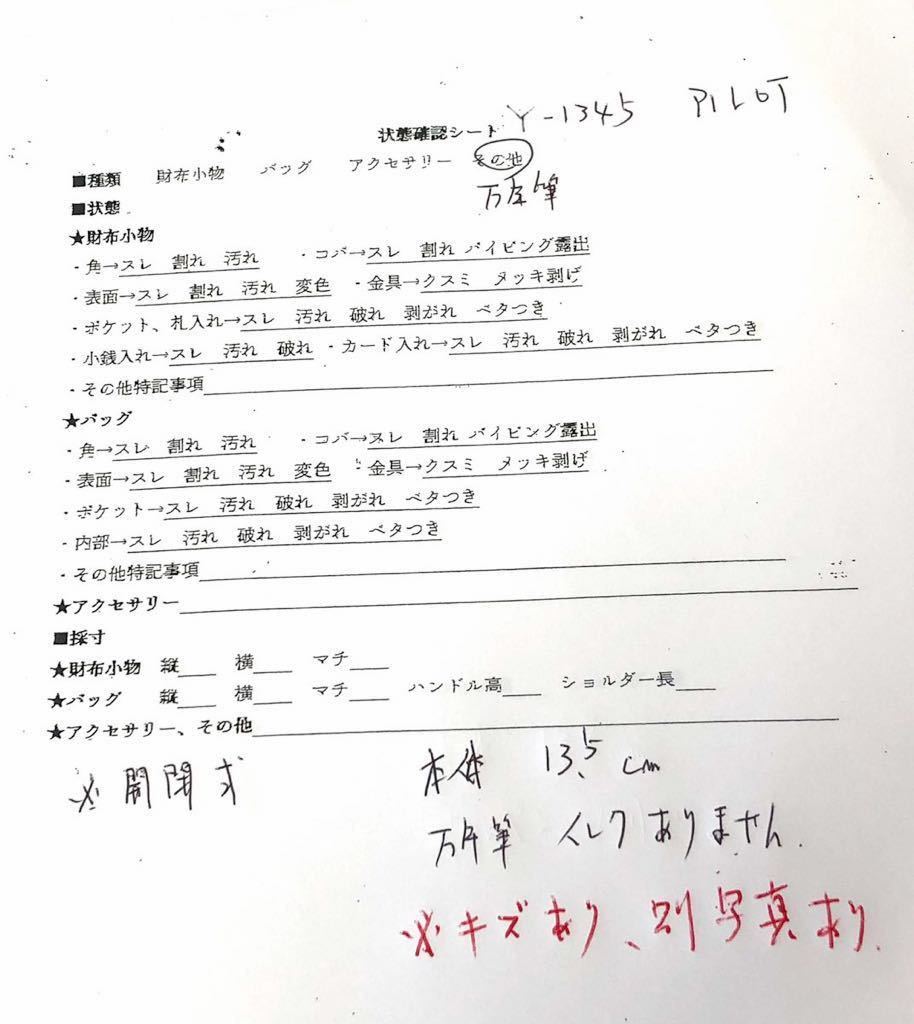 状態確認シート Y-1345 PILOT
■種類 財布小物 バッグ アクセサリー その他
万年筆
■状態
★財布小物
・角→スレ 割れ 汚れ ・コバ→スレ 割れ パイピング露出
・表面→スレ 割れ 汚れ 変色 ・金具→クスミ メッキ剥げ
・ポケット、札入れ→スレ 汚れ 破れ 剥がれ ベタつき
・小銭入れ→スレ 汚れ 破れ ・カード入れ→スレ 汚れ 破れ 剥がれ ベタつき
・その他特記事項
★バッグ
・角→スレ 割れ 汚れ ・コバ→スレ 割れ パイピング露出
・表面→スレ 割れ 汚れ 変色 ・金具→クスミ メッキ剥げ
・ポケット→スレ 汚れ 破れ 剥がれ ベタつき
・内部→スレ 汚れ 破れ 剥がれ ベタつき
・その他特記事項
★アクセサリー
■採寸
★財布小物 縦 横 マチ
★バッグ 縦 横 マチ ハンドル高 ショルダー長
★アクセサリー、その他
※開閉式 本体 13.5 cm
万年筆 インクありません.
※キズあり、別写真あり.